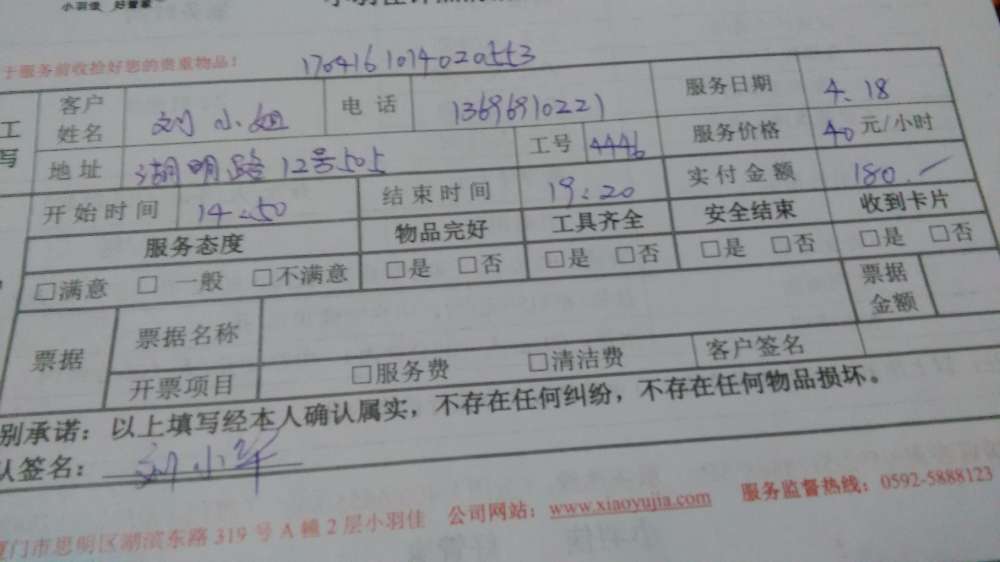 小羽佳 好管家
于服务前收捡好您的贵重物品!
客户姓名 刘小姐 电话 13696910221 服务日期 4.18
工号 4446 服务价格 40 元/小时
地址 湖明路12号505
开始时间 14:50 结束时间 19:20 实付金额 180
服务态度 物品完好 工具齐全 安全结束 收到卡片
□满意 □一般 □不满意 □是 □否 □是 □否 □是 □否 □是 □否
票据 票据名称 票据金额
开票项目 □服务费 □清洁费 客户签名
别承诺:以上填写经本人确认属实,不存在任何纠纷,不存在任何物品损坏。
认签名:刘小华
厦门市思明区湖滨东路 319 号 A 幢 2 层小羽佳 公司网站:www.xiaoyujia.com 服务监督热线:0592-5888123